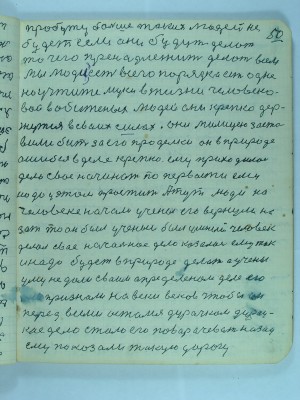 50
пробуту больше таких людей не
будет если они будут делат
то чего принадлежит делат всем
Мы людей всего порядка ет одне
научите муки в жизни человеко
людей они крепко дер-
жутся в своих силах. они милицею заста
вили быт за его проделки он в природе
ошибся в деле крепко. ему приходилос
дело свое начинат по первости ему
надо у этом простит А тут люди на
человека начали ученые его вернули на
зат то он был ученым был цший человек
делал свое начальное дело казалос ему так
и надо будет в природе делат а ученые
ему не дали своим определеном деле его
признали на веки веков чтобы он
перед всеми остался дурачком дурац-
кае дело стало его поварачеват назад
ему показали такую дорогу